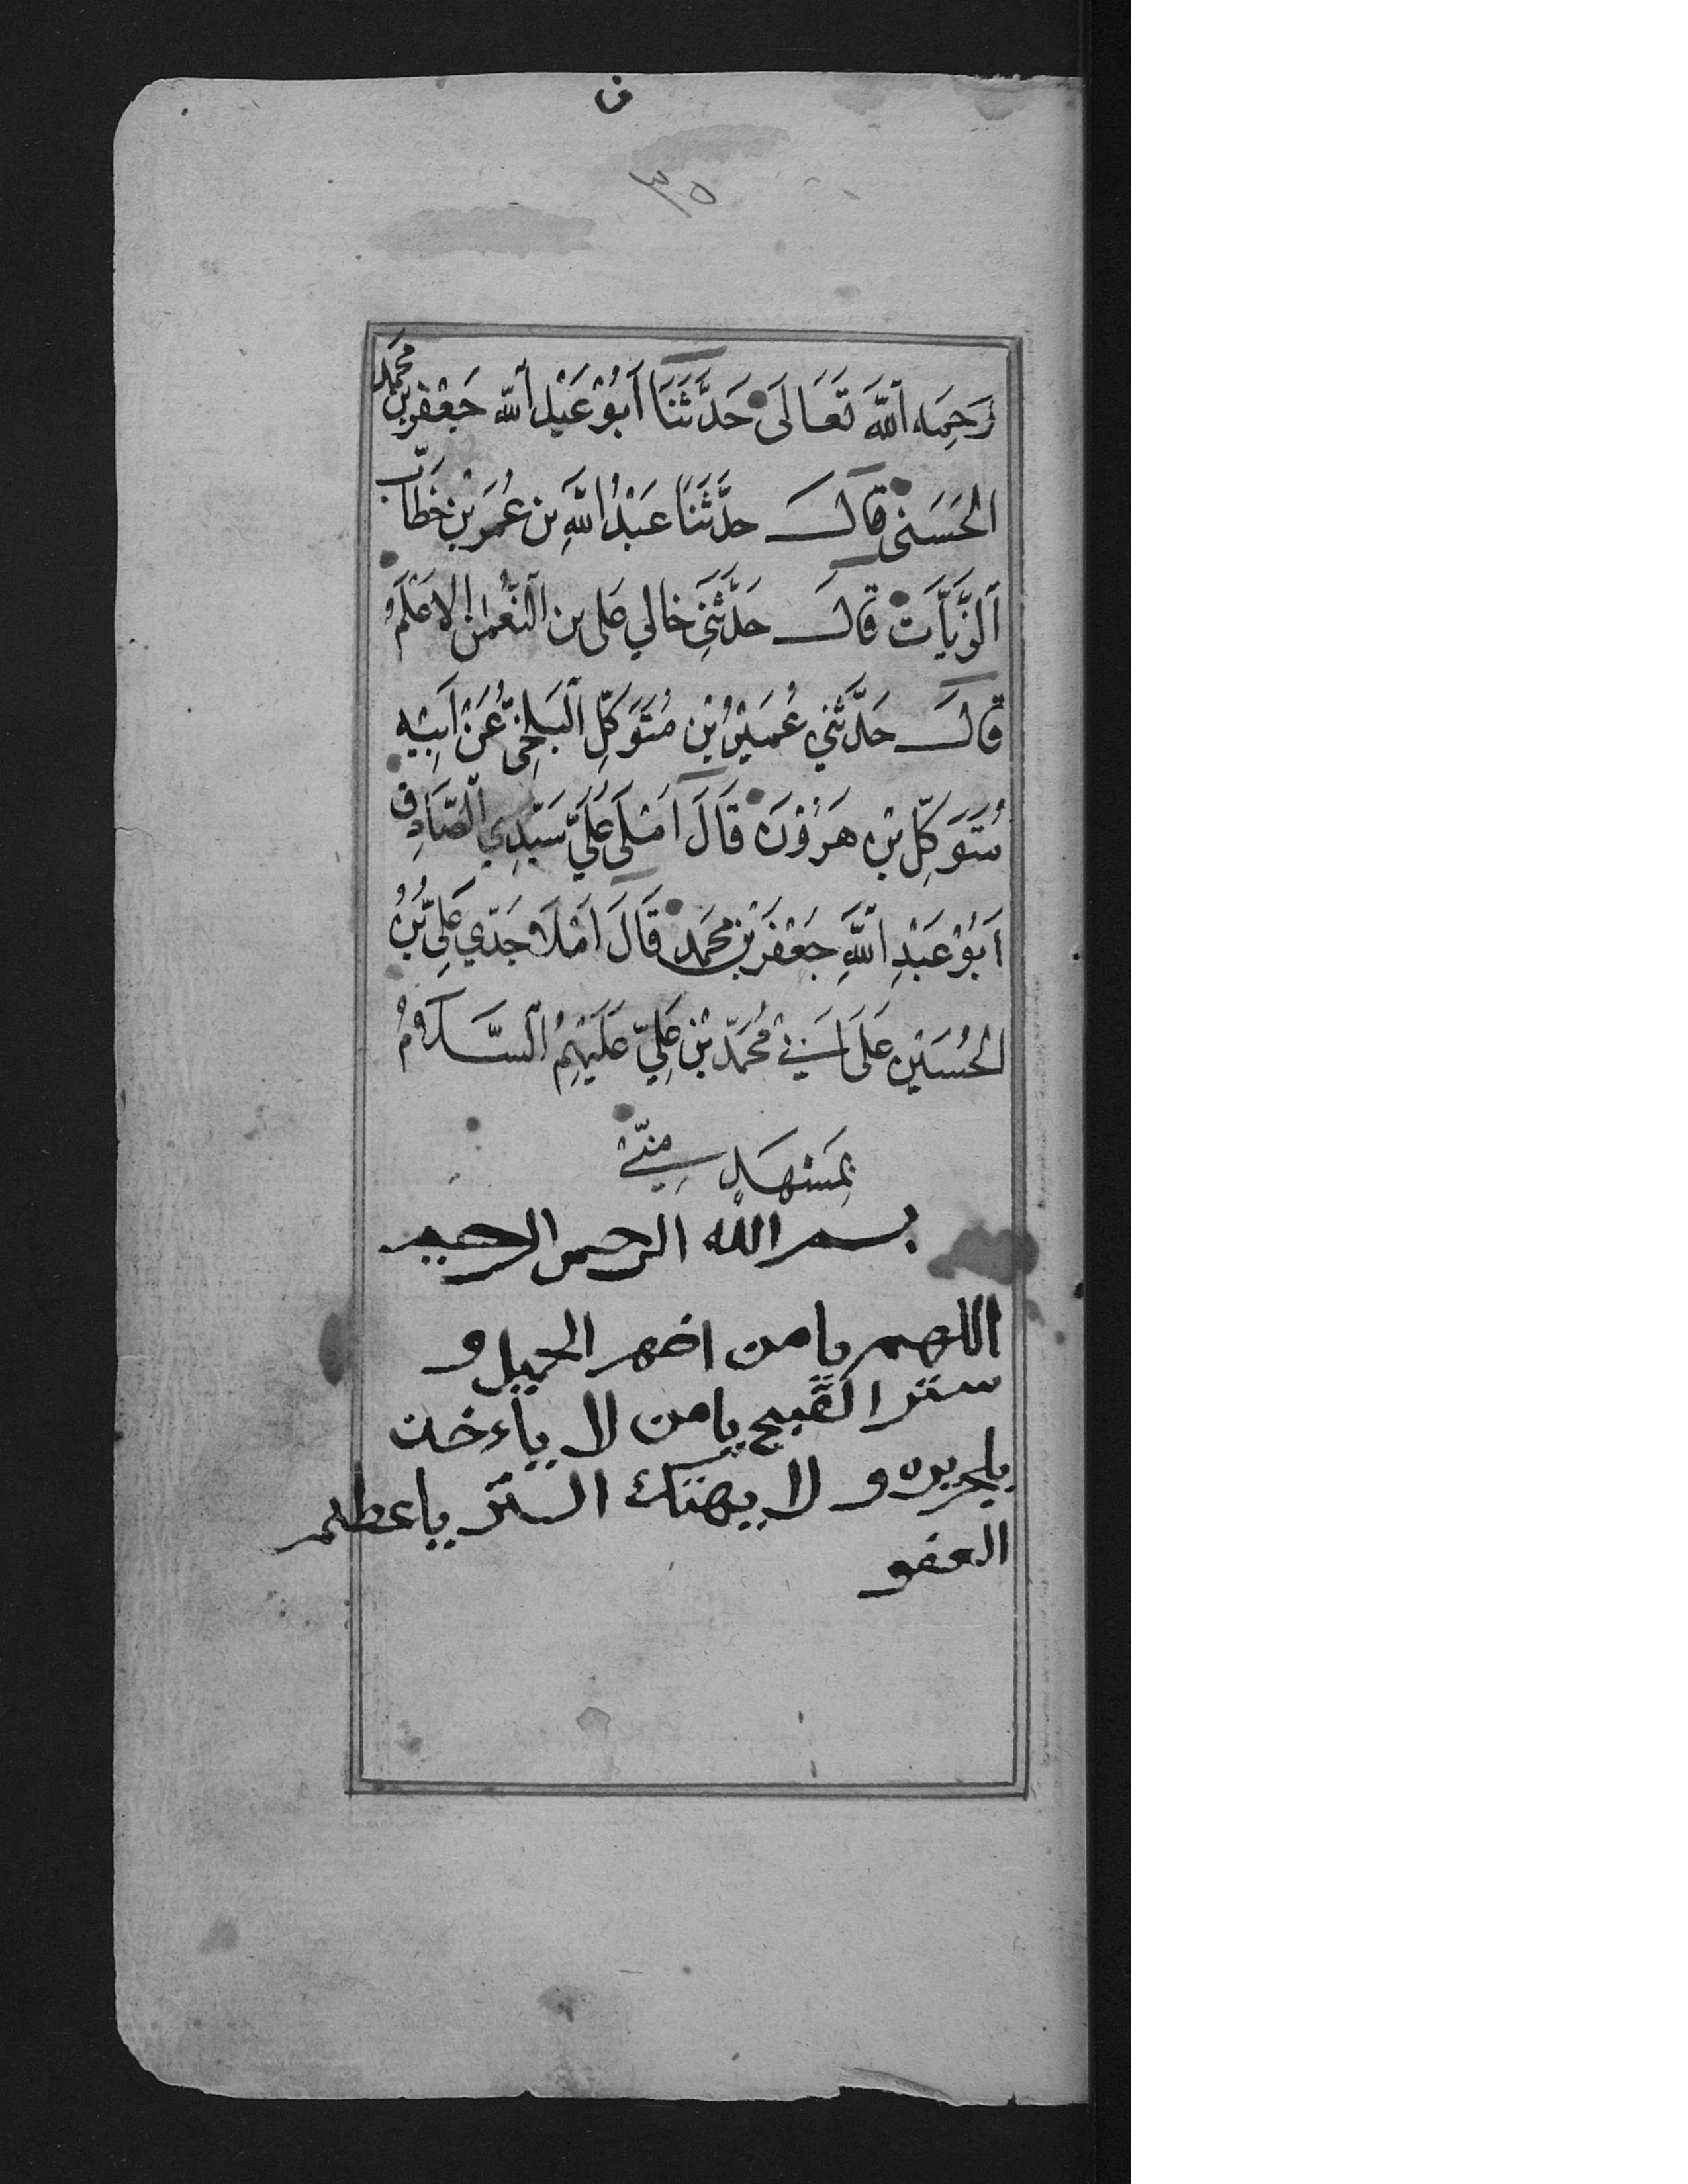 ف
٣٥
رَحِمَه اَللّهَ تَعَالَى حَدَّثَنَا اَبُوْ عَبْدِ اَللّه جَعْفَر بْن محمد
الحَسَنى قَالَ حَدَّثَنَا عَبْدُ اللّهِ بن عُمَر بْنِ خَطَّاب
اَلزَّيَّات قَالَ حَدَّثَنِى خالي عَلى بن النُّعمٰن الاَعْلَمُ
قَالَ حَدَّثَنِي عُمَيْرُ بْن مُتَوَكِّلِ اَلبَلخِىُّ عَنْ اَبِيْهِ
مُتَوَكِّلِ بْنِ هَرُوْنَ قَالَ اَمْلَى عَلَيَّ سَيِّدِي الصَّادِق
اَبُوْ عَبْدِ اللّهِ جَعْفَر بْن محمد قَالَ اَمْلَا جَدّي عَلِىّ بْنُ
الحُسَيْنِ عَلَى اَبِيْ مُحَمَّد بْنِ عَلِيّ عَلَيْهِمُ السَّلَامُ
بِمَشْهَدٍ مِنِّيْ
بسم الله الرحمن الرحيم
اللهم يامن اضهر الجميل و
ستر القبيح يامن لا ياءخذ
بلجريره و لا يهتك الستر ياعظم
العفو